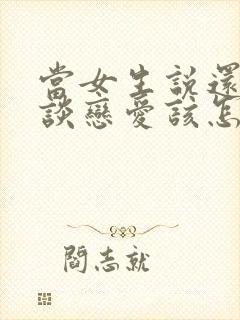 當女生說還
談戀愛該怎
閻志就